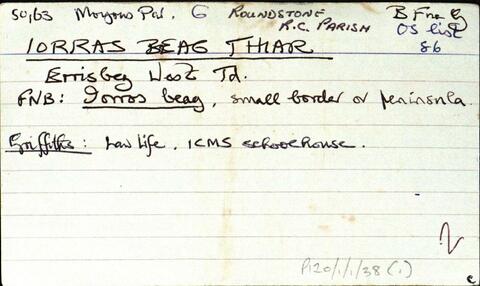 50,63 Moyrus Par. G ROUNDSTONE B Fna G
R.C. PARISH OS list
IORRAS BEAG THIAR 86
Errisbeg West Td.
FNB: Iorros beag, small border or peninsula.
Griffiths: Law Life, ICMS schoolhouse.
P120/1/1/38 (1)